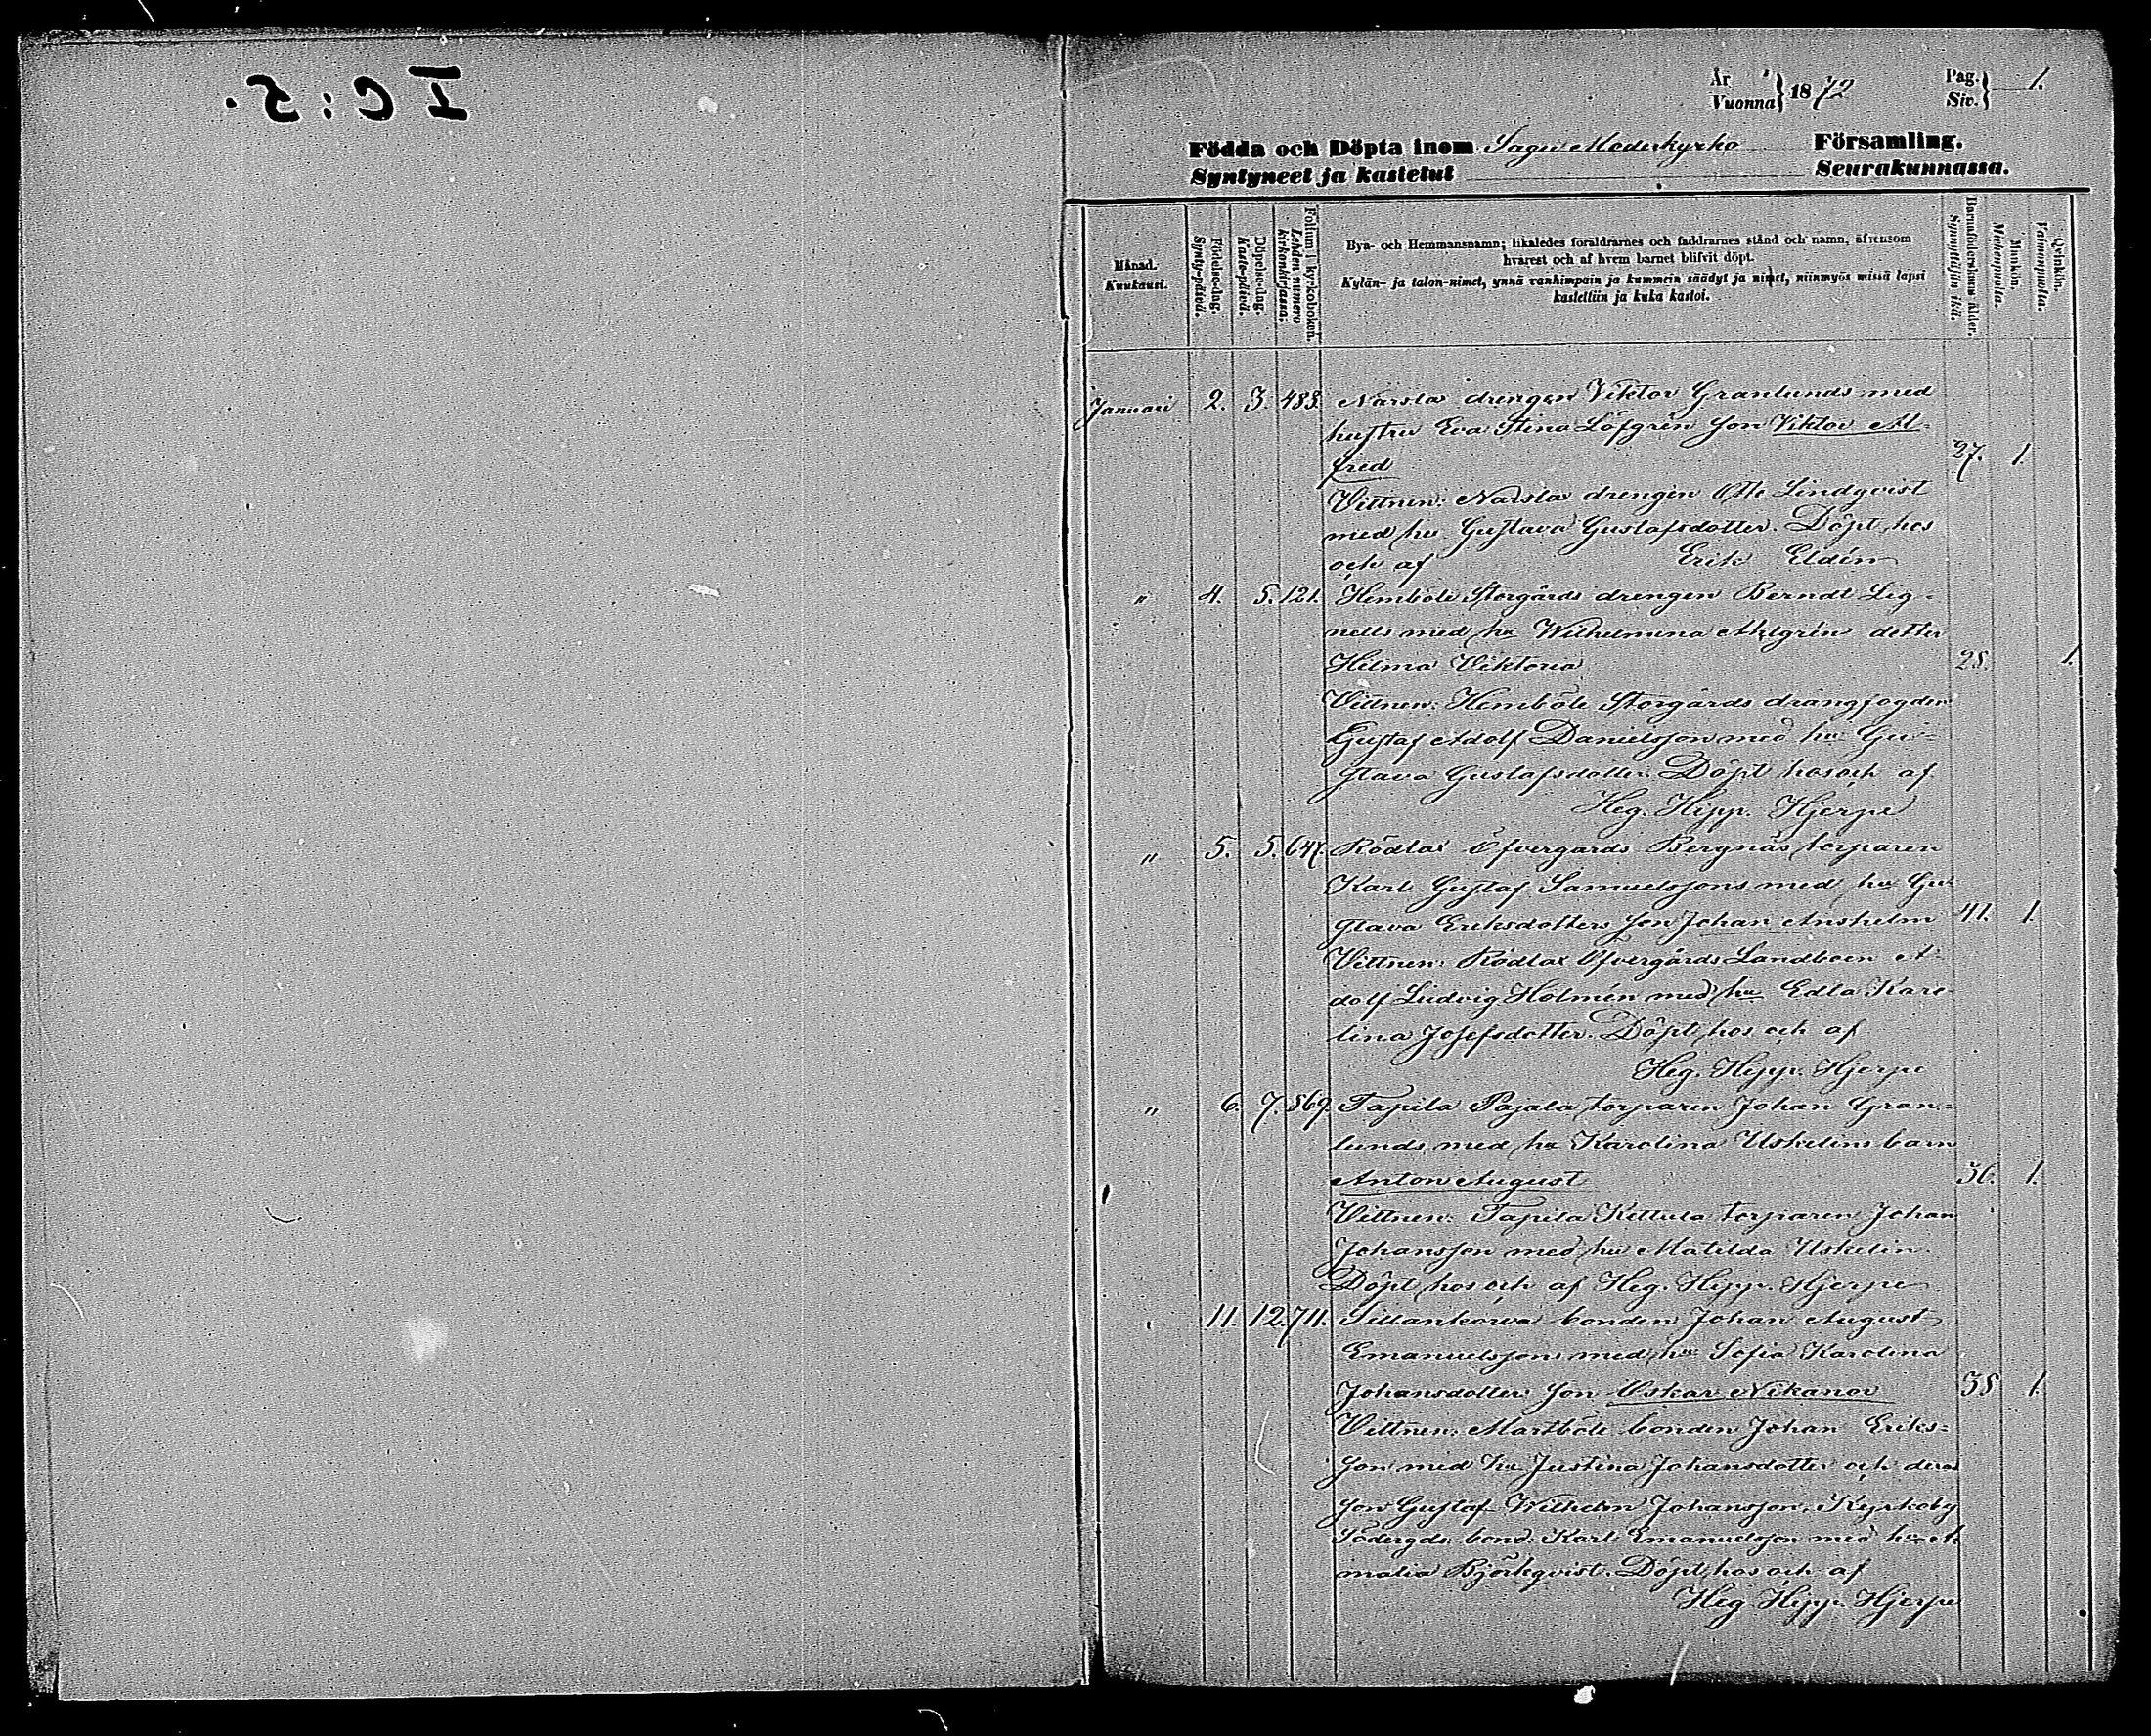 I C:5.
År
Vuonna } 1872
Pag.
Siv. } 1.
Födda och Döpta inom Sagu Moderkyrko Församling.
Syntyneet ja kastetut Seurakunnassa.
Månad.
Kuukausi.
Födelse-dag.
Synty-päivä.
Döpelse-dag.
Kaste-päivä.
Folium i kyrkoboken.
Lehden numero kirkonkirjassa.
Byn- och Hemmansnamn; likaledes föräldrarnes och faddrarnes stånd och namn, äfvensom
hvarest och af hvem barnet blifvit döpt.
Kylän- ja talon-nimet, ynnä vanhimpain ja kummein säädyt ja nimet, niinmyös missä lapsi
kastettiin ja kuka kastoi.
Barnaföderskans ålder.
Synnyttäjän ikä.
Mankön.
Miehenpuolia.
Qvinkön.
Vaimonpuolia.
Januari 2. 3. 483. Närsta drengen Viktor Granlunds med
hustru Eva Stina Löfgrén son Viktor Al-
fred 27. 1.
Vittnen: Närsta drengen Otto Lindqvist
med hu Gustava Gustafsdotter. Döpt hos
och af Erik Eldén
" 4. 5. 121. Hemböle Storgårds drengen Berndt Lig-
nells med hu Wilhelmina Ahlgrén dotter
Hilma Viktoria 28. 1.
Vittnen: Hemböle Storgårds drängfogden
Gustaf Adolf Danielsson med hu Gu-
stava Gustafsdotter. Döpt hos och af
Heg. Hipp. Hjerpe
" 5. 5. 647. Rödlax Öfvergårds Bergnäs torparen
Karl Gustaf Samuelssons med hu Gu
stava Eriksdotters son Johan Anshelm 41. 1.
Vittnen: Rödlax Öfvergårds Landboen A-
dolf Ludvig Holmén med hu Edla Karo-
lina Josefsdotter. Döpt hos och af
Heg. Hipp. Hjerpe
" 6. 7. 869. Tapila Pajala torparen Johan Gran-
lunds med hu Karolina Uskelins barn
Anton August 36. 1.
Vittnen: Tapila Kettula torparen Johan
Johansson med hu Matilda Uskelin.
Döpt hos och af Heg. Hipp. Hjerpe
11. 12. 711. Sillankorva bonden Johan August
Emanuelssons med hu Sofia Karolina
Johansdotter son Oskar Nikanor 38 1.
Vittnen: Martböle bonden Johan Eriks-
son med hu Justina Johansdotter och deras
son Gustaf Wilhelm Johansson, Kyrkoby
Södergds. bond. Karl Emanuelsson med hu A
malia Björkqvist. Döpt hos och af
Heg Hipp. Hjerpe